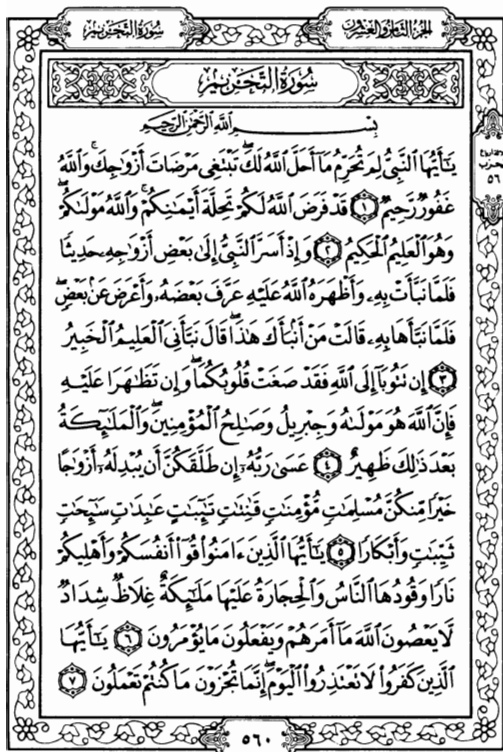 سُورَةُ التَّحْرِيمِ
الجُزْءُ الثَّامِنُ وَالعِشْرُونَ
سُورَةُ التَّحْرِيمِ
بِسْمِ اللَّهِ الرَّحْمَٰنِ الرَّحِيمِ
يَٰٓأَيُّهَا ٱلنَّبِيُّ لِمَ تُحَرِّمُ مَآ أَحَلَّ ٱللَّهُ لَكَۖ تَبْتَغِى مَرْضَاتَ أَزْوَٰجِكَۚ وَٱللَّهُ
غَفُورٌ رَّحِيمٌ ١ قَدْ فَرَضَ ٱللَّهُ لَكُمْ تَحِلَّةَ أَيْمَٰنِكُمْۚ وَٱللَّهُ مَوْلَىٰكُمْۖ
وَهُوَ ٱلْعَلِيمُ ٱلْحَكِيمُ ٢ وَإِذْ أَسَرَّ ٱلنَّبِيُّ إِلَىٰ بَعْضِ أَزْوَٰجِهِۦ حَدِيثًا
فَلَمَّا نَبَّأَتْ بِهِۦ وَأَظْهَرَهُ ٱللَّهُ عَلَيْهِ عَرَّفَ بَعْضَهُۥ وَأَعْرَضَ عَنۢ بَعْضٍۖ
فَلَمَّا نَبَّأَهَا بِهِۦ قَالَتْ مَنْ أَنۢبَأَكَ هَٰذَاۖ قَالَ نَبَّأَنِىَ ٱلْعَلِيمُ ٱلْخَبِيرُ
٣ إِن تَتُوبَآ إِلَى ٱللَّهِ فَقَدْ صَغَتْ قُلُوبُكُمَاۖ وَإِن تَظَٰهَرَا عَلَيْهِ
فَإِنَّ ٱللَّهَ هُوَ مَوْلَىٰهُ وَجِبْرِيلُ وَصَٰلِحُ ٱلْمُؤْمِنِينَۖ وَٱلْمَلَٰٓئِكَةُ
بَعْدَ ذَٰلِكَ ظَهِيرٌ ٤ عَسَىٰ رَبُّهُۥٓ إِن طَلَّقَكُنَّ أَن يُبْدِلَهُۥٓ أَزْوَٰجًا
خَيْرًا مِّنكُنَّ مُسْلِمَٰتٍ مُّؤْمِنَٰتٍ قَٰنِتَٰتٍ تَٰٓئِبَٰتٍ عَٰبِدَٰتٍ سَٰٓئِحَٰتٍ
ثَيِّبَٰتٍ وَأَبْكَارًا ٥ يَٰٓأَيُّهَا ٱلَّذِينَ ءَامَنُوا۟ قُوٓا۟ أَنفُسَكُمْ وَأَهْلِيكُمْ
نَارًا وَقُودُهَا ٱلنَّاسُ وَٱلْحِجَارَةُ عَلَيْهَا مَلَٰٓئِكَةٌ غِلَاظٌ شِدَادٌ
لَّا يَعْصُونَ ٱللَّهَ مَآ أَمَرَهُمْ وَيَفْعَلُونَ مَا يُؤْمَرُونَ ٦ يَٰٓأَيُّهَا
ٱلَّذِينَ كَفَرُوا۟ لَا تَعْتَذِرُوا۟ ٱلْيَوْمَۖ إِنَّمَا تُجْزَوْنَ مَا كُنتُمْ تَعْمَلُونَ ٧
٥٦
٥٦٠